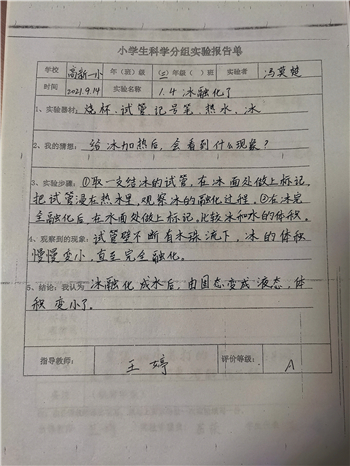 小学生科学分组实验报告单
学校 高新一小 年（班）级 （三）年级（ ）班 实验者 冯莫楚
时间 2021.9.14 实验名称 1.4 冰融化了
1、实验器材：烧杯、试管、记号笔、热水、冰
2、我的猜想：给冰加热后，会看到什么现象？
3、实验步骤：①取一支结冰的试管，在冰面处做上标记。
把试管浸在热水里，观察冰的融化过程，②在冰完
全融化后，在水面处做上标记，比较冰和水的体积。
4、观察到的现象：试管壁不断有水珠流下，冰的体积
慢慢变小，直至完全融化。
5、结论：我认为 冰融化成水后，由固态变成液态，体
积变小了。
指导教师： 王婷 评价等级： A